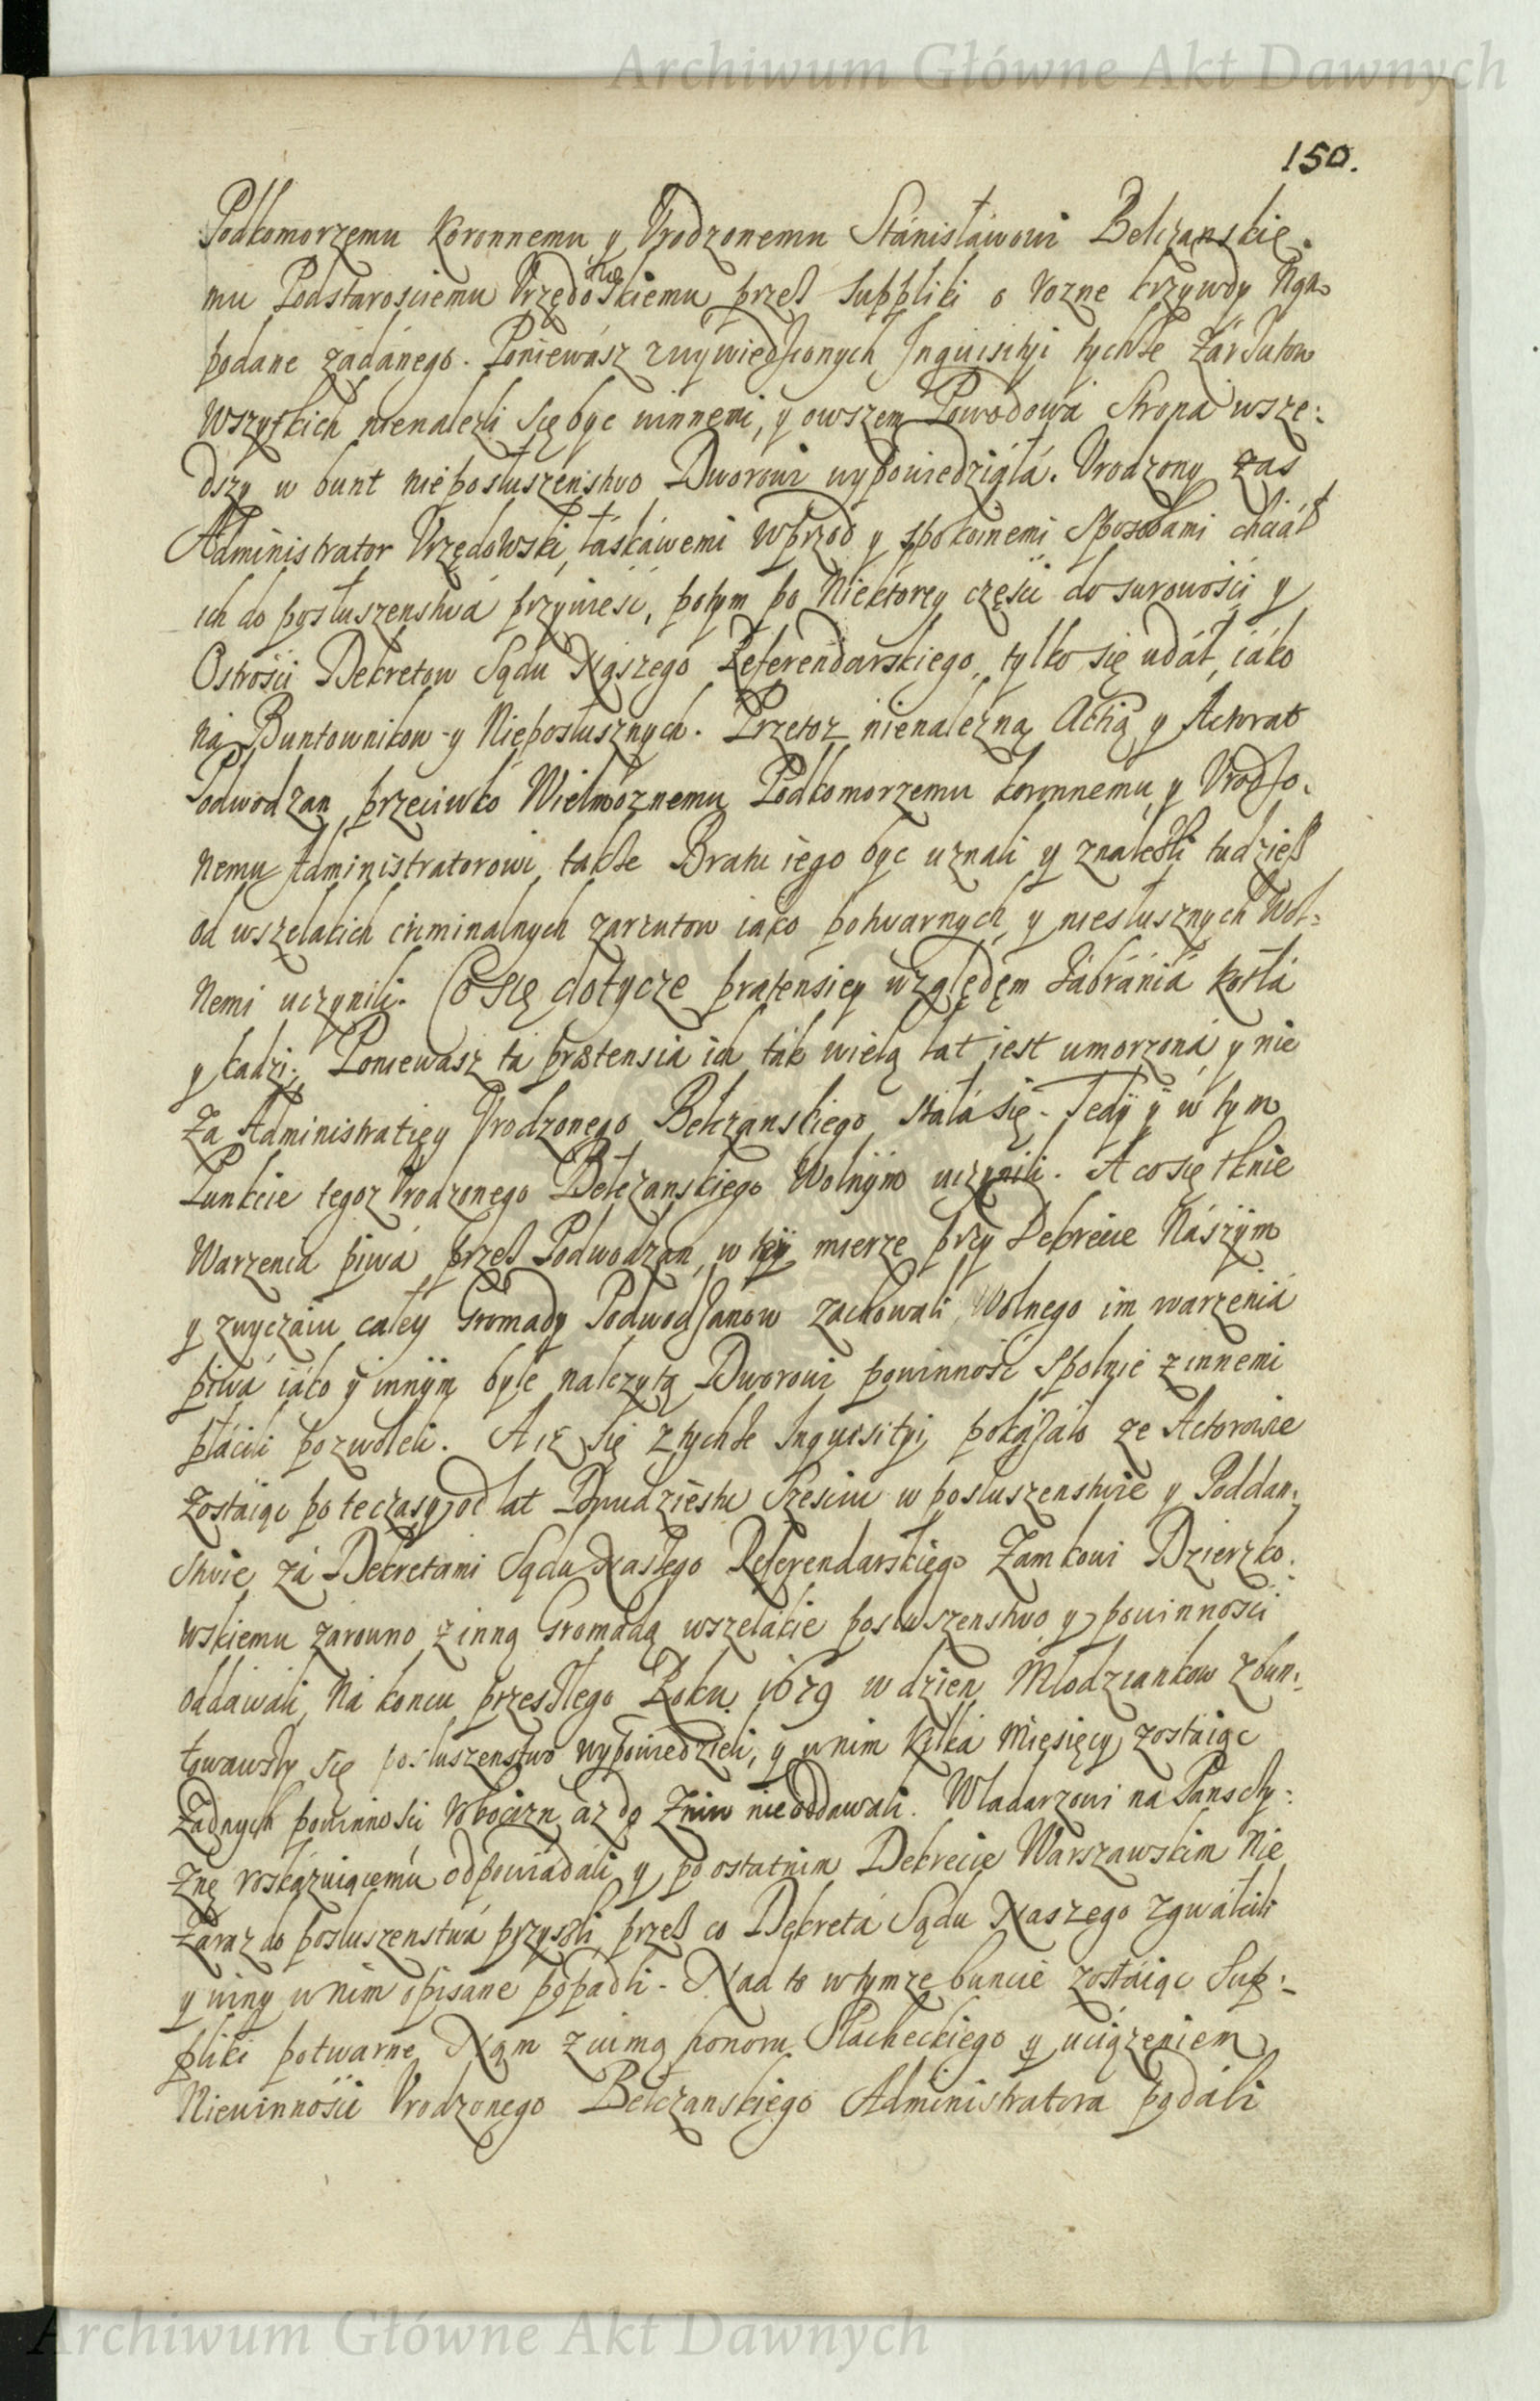 Archiwum Główne Akt Dawnych
150.
Podkomorzemu Koronnemu y Vrodzonemu Stánisłáwowi Bełczanskie-
mu Podstarosciemu Vrzędowskiemu przeß Suppliki o rozne krzywdy Nąm
podane zadánego. Poniewász zwywiedzionych Inquisityi tychße Zárzutow
Wszytkich nienalezli się byc winnemi, y owszem Powodowa Strona wsze:
dszy w bunt nieposłuszenstwo Dworowi wypowiedziáłá. Vrodzony zas
Administrator Vrzędowski, łáskáwemi wprzod y spokoinemi Sposobami chciáł
ich do posłuszenstwá przywieść, potym po Niektorey części do surowości y
Ostrości Dekretow Sądu Nászego Referendarskiego, tylko się udáł, iáko
ná Buntownikow y Nieposłusznych. Przetoz nienalezną Actią y Actorat
Podwodzan przeciwko Wielmoznemu Podkomorzemu koronnemu y Vrodzo-
nemu Administratorowi, takße Bratu iego byc uznali y znaleźli tudzieß
od wszelakich criminalnych zarzutow iako potwarnych y niesłusznych Wol:
nemi uczynili. Co się dotycze prætensiey względęm Zábránia kotłá
y kadzi; Poniewasz ta prætensia ich ták wielą lat iest umorzoná y nie
Za Administratięy Vrodzonego Bełczanskiego stáłá się. Tedÿ ÿ w tym
Punkcie tegoz Vrodzonego Bełczanskiego Wolnÿm uczynili. A co się tknie
Warzenia piwá przeß Podwodzan, w teÿ mierze przy Dekrecie Nászÿm
y zwyczaiu całey Gromady Podwodzanow zachowali, Wolnego im warzeniá
piwá iáko ÿ innÿm byle nalezytą Dworowi powinność Spolnie z innemi
płácili pozwoleli. A iz się z tychße Inquisityi pokázáło ze Actorowie
zostáiąc po te czasy od lat Dwudziestu Szesciu w posłuszenstwie y Poddan:
stwie zá Dekretami Sądu Naszego Referendarskiego Zamkowi Dzierzko:
wskiemu zarowno z inną Gromadą wszelákie posłuszenstwo y powinności
oddawali, Ná koncu przeszłego Roku 1679 w dzien Młodziankow zbun:
towawszy się posłuszenstwo wypowiedzieli, y w nim kilká Miesięcy zostáiąc
Zadnych powinności Robocizn az do Zniw nie oddawali. Władarzowi na Panszczy:
znę roskázuiącemu odpowiádáli y po ostatnim Dekrecie Warszawskim Nie
Zaraz do posłuszenstwá przyszli, przeß co Dekretá Sądu Naszego zgwałcili
y winy w nim opisane popadli. Nad to w tymze buncie zostáiąc Sup:
pliki potwarne Nąm z uimą honoru Slacheckiego y uciązeniem
Niewinności Vrodzonego Bełczanskiego Administratora podáli
Archiwum Główne Akt Dawnych